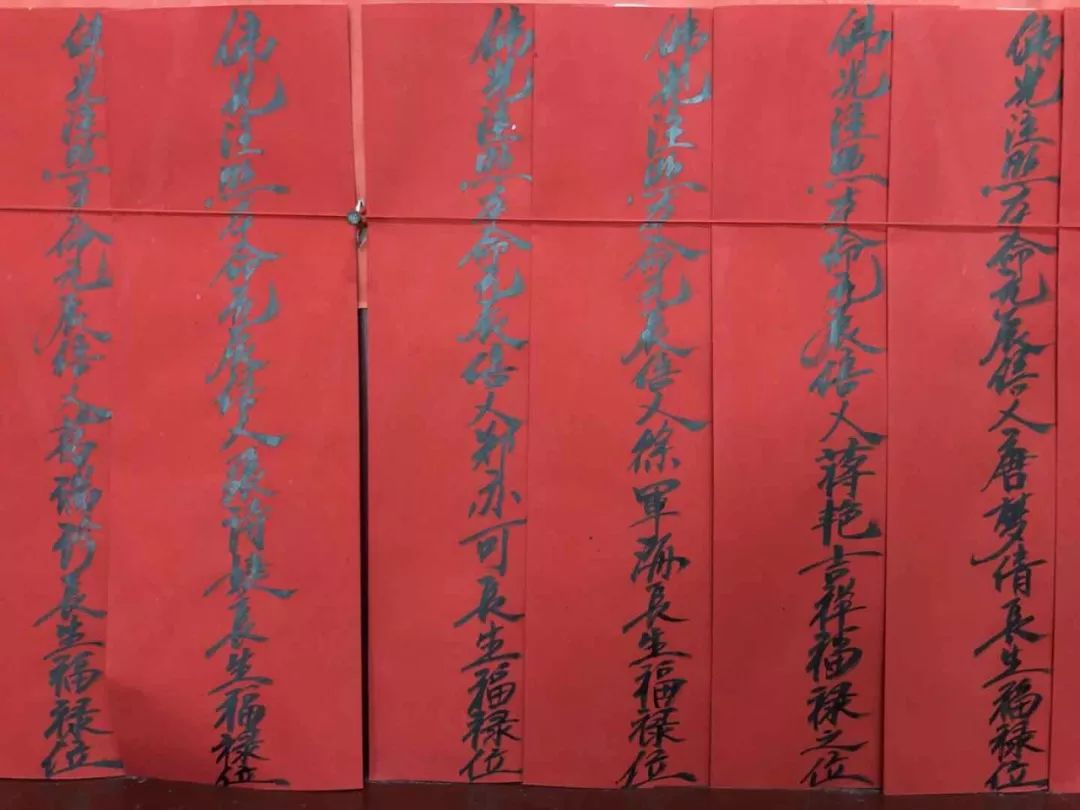 佛光注照本命元辰信人唐梦倩長生福禄位
佛光注照本命元辰信人蒋艳吉祥福禄之位
佛光注照本命元辰信人徐軍海長生福禄位
佛光注照本命元辰信人郑亦可長生福禄位
佛光注照本命元辰信人張長生福禄位
佛光注照本命元辰信人葛瑞長生福禄位